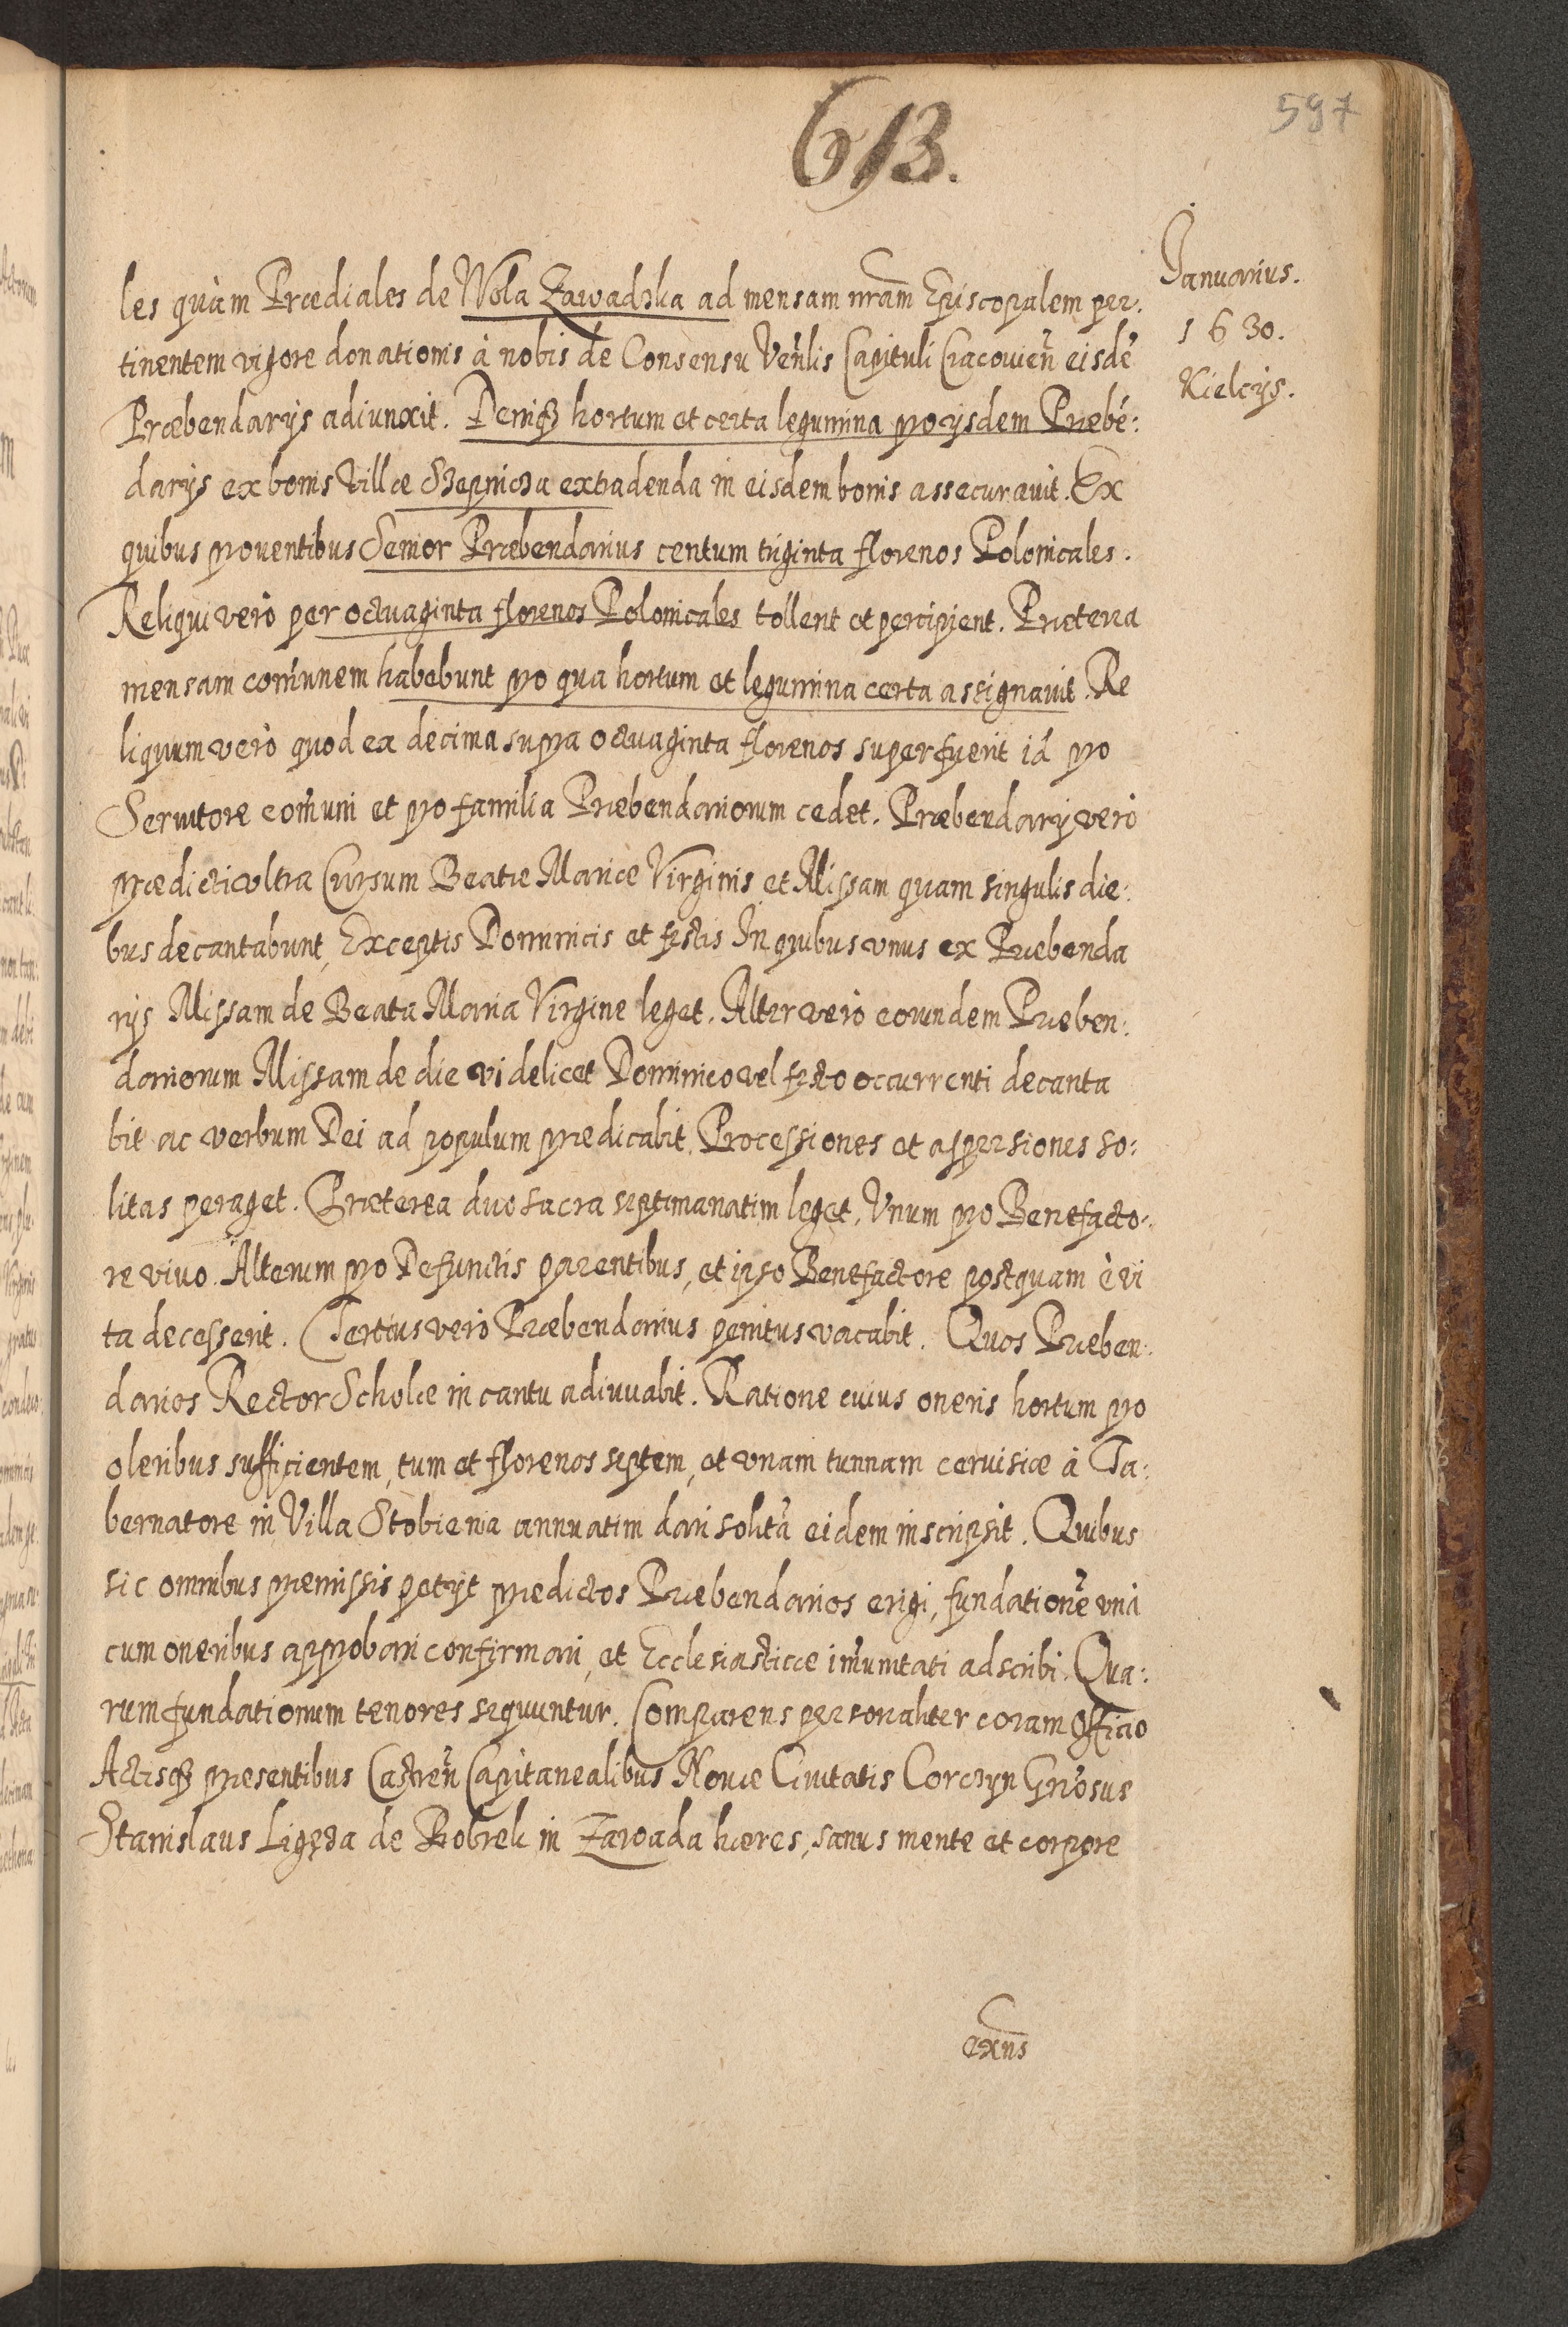 597
613.
Januarius.
1630.
Kielcijs.
les quàm Prædiales de Wola Zawadzka ad mensam nram̃ Episcopalem per:
tinentem vigore donationis à nobis de Consensu Veñlis Capituli Cracovieñ eisdẽ
Præbendarijs adiunxit. Deniqz hortum et certa legumina pro ijsdem Præbẽ:
darijs ex bonis Villæ extradenda in eisdem bonis assecurauit. Ex
quibus prouentibus Senior Præbendarius centum triginta florenos Polonicales.
Reliqui verò per octuaginta florenos Polonicales tollent et percipient. Præterea
mensam com̃unem habebunt pro qua hortum et legumina certa assignauit. Re
liquum verò quod ex decima supra octuaginta florenos superfuerit id pro
Seruitore com̃uni et pro familia Præbendariorum cedet. Præbendarij verò
prædicti vltra Cursum Beatæ Mariæ Virginis et Missam quam singulis die:
bus decantabunt, Exceptis Dominicis et festis In quibus vnus ex Præbenda
rijs Missam de Beata Maria Virgine leget. Alter verò eorundem Præben:
dariorum Missam de die videlicet Dominico vel festo occurrenti decanta
bit ac verbum Dei ad populum prædicabit. Processiones et aspersiones so:
litas peraget. Præterea duo sacra septimanatim leget, Vnum pro Benefacto:
re viuo. Alterum pro Defunctis parentibus, et ipso Benefactore postquam è vi
ta decesserit. Tertius verò Præbendarius penitus vacabit. Quos Præben:
darios Rector Scholæ in cantu adiuuabit. Ratione cuius oneris hortum pro
oleribus sufficientem, tum et florenos septem, et vnam tunnam ceruisiæ à Ta:
bernatore in Villa Stobiernia annuatim dari solitã eidem inscripsit. Quibus
sic omnibus præmissis petijt prædictos Præbendarios erigi, fundationẽ vnà
cum oneribus approbari confirmari, et Ecclesiasticæ im̃unitati adscribi. Qua:
rum fundationum tenores sequuntur. Comparens personaliter coram Officio
Actisqz præsentibus Castreñ Capitanealibus Nouæ Ciuitatis Corczyn Gñosus
Stanislaus Ligęza de Bobrek in Zawada hæres, sanus mente et corpore
exñs